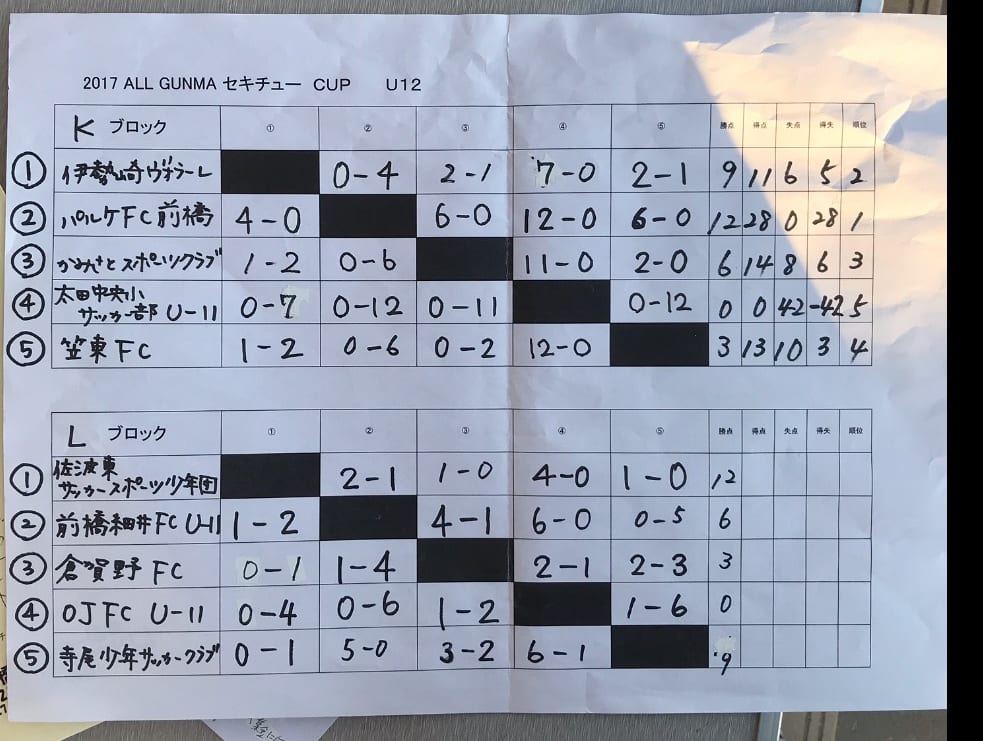 2017 ALL GUNMA セキチュー CUP U12
K ブロック ① ② ③ ④ ⑤ 勝点 得点 失点 得失 順位
① 伊勢崎ヴォラーレ 0-4 2-1 7-0 2-1 9 11 6 5 2
② パルケFC前橋 4-0 6-0 12-0 6-0 12 28 0 28 1
③ かみさとスポーツクラブ 1-2 0-6 11-0 2-0 6 14 8 6 3
④ 太田中央小
サッカー部 U-11 0-7 0-12 0-11 0-12 0 0 42 -42 5
⑤ 笠東FC 1-2 0-6 0-2 12-0 3 13 10 3 4
L ブロック ① ② ③ ④ ⑤ 勝点 得点 失点 得失 順位
① 佐波東
サッカースポーツ少年団 2-1 1-0 4-0 1-0 12
② 前橋細井FC U-11 1-2 4-1 6-0 0-5 6
③ 倉賀野 FC 0-1 1-4 2-1 2-3 3
④ OJFC U-11 0-4 0-6 1-2 1-6 0
⑤ 寺尾少年サッカークラブ 0-1 5-0 3-2 6-1 9